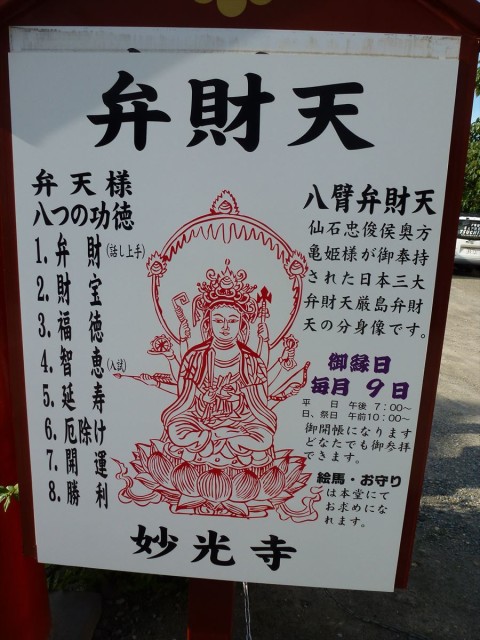 弁財天
弁天様
八つの功徳
1. 弁財(話し上手)
2. 財宝
3. 福徳
4. 智恵(入試)
5. 延寿
6. 厄除け
7. 開運
8. 勝利
八臂弁財天
仙石忠俊侯奥方
亀姫様が御奉持
された日本三大
弁財天厳島弁財
天の分身像です。
御縁日
毎月 9日
平 日 午後 7:00〜
日、祭日 午前10:00〜
御開帳になります
どなたでも御参拝
できます。
絵馬・お守り
は本堂にて
お求めにな
れます。
妙光寺